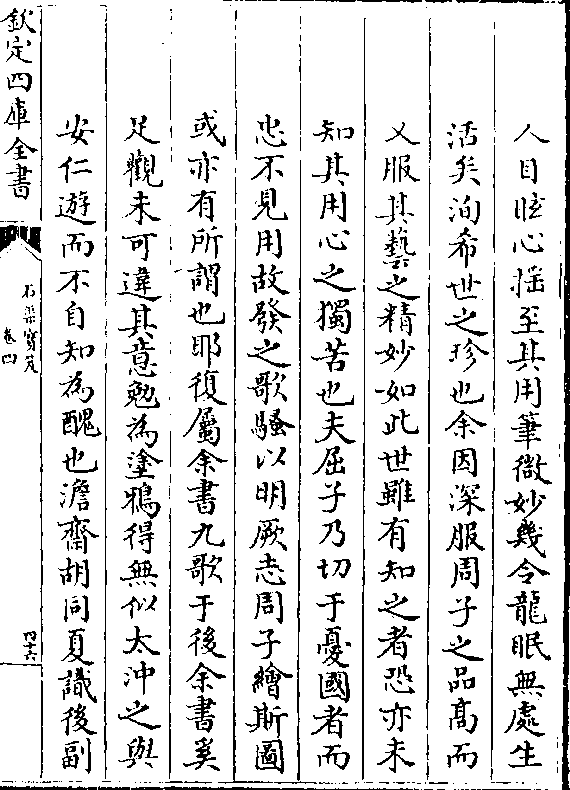 人目眩心揺至其用筆微妙幾令龍眠無處生
活矣洵希世之珍也余因深服周子之品髙而
又服其藝之精妙如此世雖有知之者恐亦未
知其用心之獨苦也夫屈子乃切于憂國者而
忠不見用故發之歌騷以明厥志周子繪斯圖
或亦有所謂也耶復屬余書九歌于後余書奚
足觀未可違其意勉為塗鴉得無似太沖之與
安仁遊而不自知為醜也澹齋胡同夏識後副
欽定四庫全書
石渠寳笈
卷四
四十六